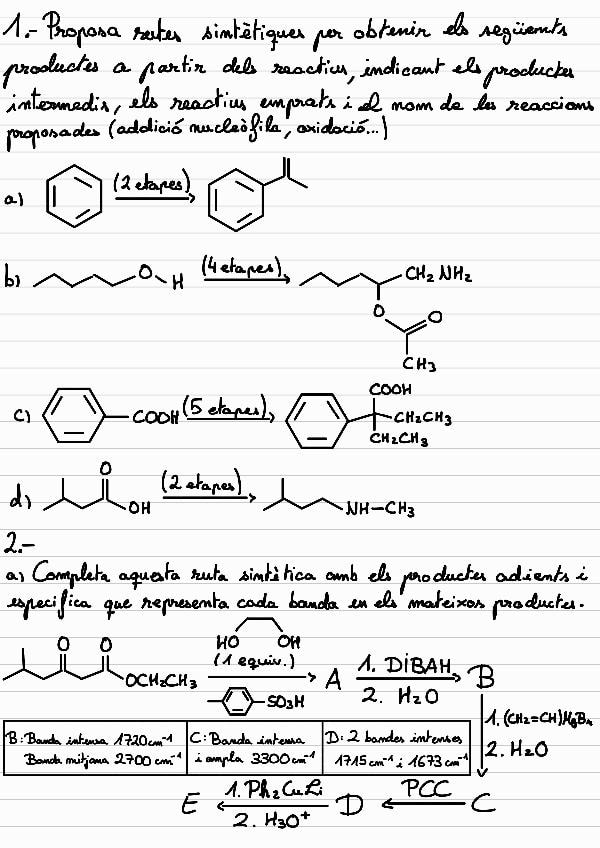 1.- Proposa rutes sintètiques per obtenir els següents
productes a partir dels reactius, indicant els productes
intermedis, els reactius emprats i el nom de les reaccions
proposades (addició nucleòfila, oxidació...)
a) (2 etapes)
b) O H (4 etapes) CH₂ NH₂
O O
CH₃
c) COOH (5 etapes) COOH
CH₂CH₃
CH₂CH₃
d) O OH (2 etapes) NH-CH₃
2.-
a) Completa aquesta ruta sintètica amb els productes adients i
especifica que representa cada banda en els mateixos productes.
O O OCH₂CH₃ HO OH
(1 equiv.)
SO₃H
A 1. DIBAH B
2. H₂O
1. (CH₂=CH)MgBr
2. H₂O
B: Banda intensa 1720 cm⁻¹
Banda mitjana 2700 cm⁻¹
C: Banda intensa
i ampla 3300 cm⁻¹
D: 2 bandes intenses
1715 cm⁻¹ i 1673 cm⁻¹
E 1. Ph₂CuLi D PCC C
2. H₃O⁺